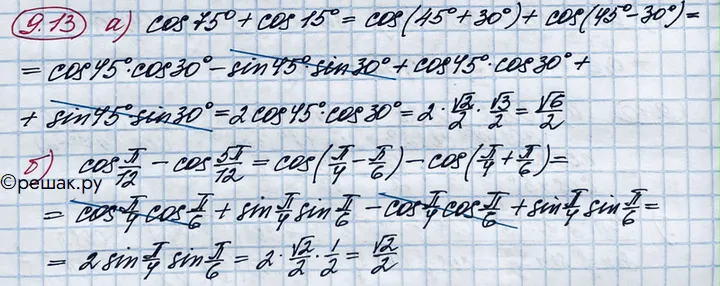 9.13 а) cos 75° + cos 15° = cos(45° + 30°) + cos(45° - 30°) =
= cos45°·cos30° - sin45°·sin30° + cos45°·cos30° +
+ sin45°·sin30° = 2cos45°·cos30° = 2·√2/2·√3/2 = √6/2
б) cos π/12 - cos 5π/12 = cos(π/4 - π/6) - cos(π/4 + π/6) =
©решак.ру
= cos π/4 cos π/6 + sin π/4 sin π/6 - cos π/4 cos π/6 + sin π/4 sin π/6 =
= 2 sin π/4 sin π/6 = 2·√2/2·1/2 = √2/2